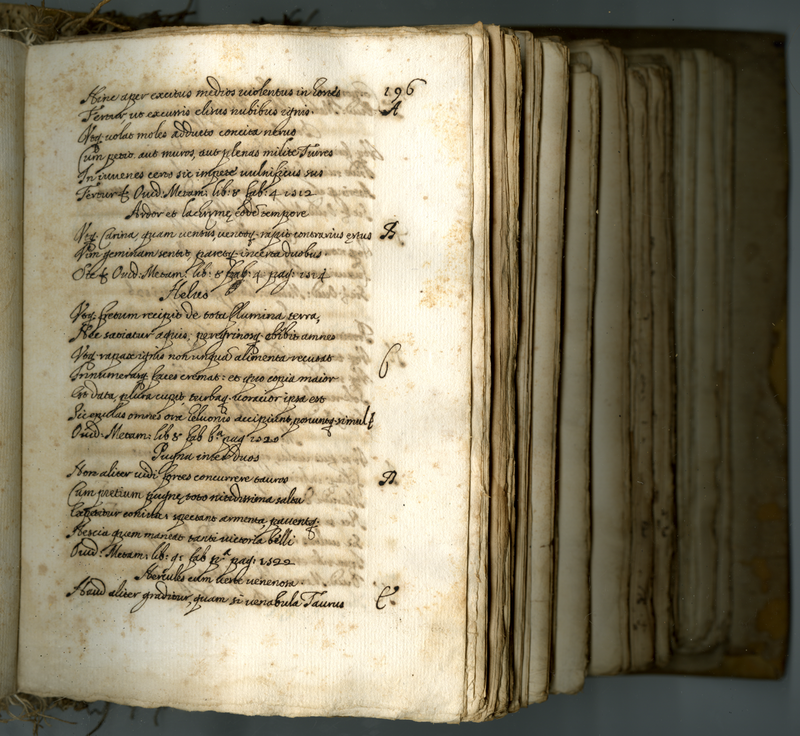 196
Hinc aper excitus medios violentus in hostes A
Fertur ut excussis elisus nubibus ignis.
Utq; volat moles adducto concita nervo
Cum petit aut muros, aut plenas milite Turres
In iuvenes certo sic impete vulnificus sus
Fertur & Ovid: Metam: lib: 8 fab: 4
Ardor et lachrymę, eodē tempore
Utq; Carina, quam ventus, ventoq; rapit contrarius ęstus B
Vim geminam sentit, paretq; incerta duobus.
Ovid: Metam: lib: 8 fab: 4. pag: 1514
Heluo
Utq; fretum recipit de tota flumina terra,
Nec satiatur aquis, peregrinosq; ebibit amnes
Utq; rapax ignis non unquā alimenta recusat
Innumerasq; faces cremat: et quo copia maior
Est data, plura cupit, turbaq; voracior ipsa est
Sic epulas omnes ora heluonis accipiunt, poscuntq; simul &
Ovid: Metam: lib 8 fab 6ª pag 1520
Pugna inter duos
Non aliter vidi fortes concurrere tauros D
Cum pretium pugnę, toto nitidissima saltu
Expetitur coniux: spectant armenta, paventq;
Nescia quem maneat tanti victoria belli
Ovid: Metam: lib: 9: fab pª pag: 1522
Hercules cum veste venenosa.
Haud aliter graditur, quam si venabula Taurus E